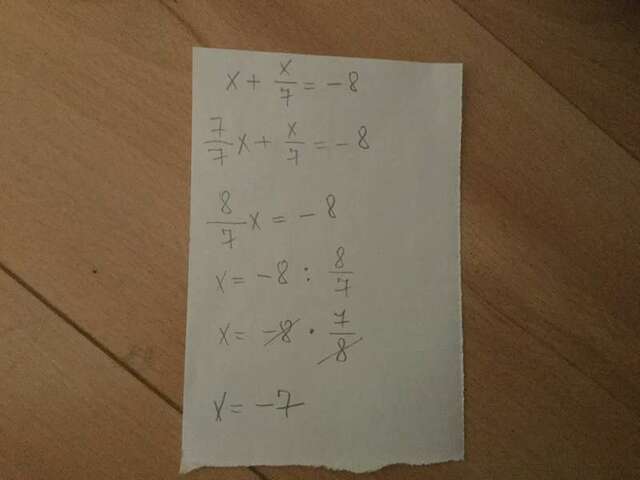 x + x/7 = -8
7/7 x + x/7 = -8
8/7 x = -8
x = -8 : 8/7
x = -8 · 7/8
x = -7